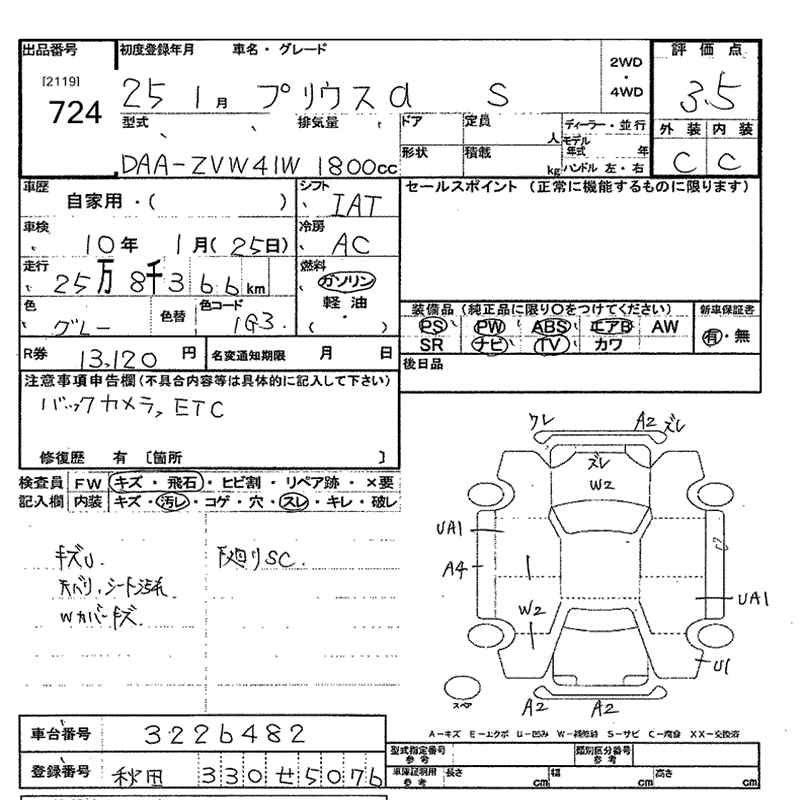 出品番号 初度登録年月 車名・グレード 2WD・4WD 評価点
[2119]
724
25 1月 プリウスα S 3.5
型式 排気量 ドア 定員 人 ディーラー・並行 外装 内装
モデル年式 年
DAA-ZVW41W 1800cc 形状 積載 kg ハンドル 左・右 C C
車歴 自家用・( ) シフト IAT セールスポイント (正常に機能するものに限ります)
車検 10年 1月(25日) 冷房 AC
走行 25万8千366km 燃料 ガソリン
軽油
( )
色 グレー 色替 色コード 1G3.
装備品 (純正品に限り○をつけてください) 新車保証書
PS PW ABS エアB AW 有・無
SR ナビ TV カワ
R券 13,120円 名変通知期限 月 日 後日品
注意事項申告欄(不具合内容等は具体的に記入して下さい)
バックカメラ, ETC
修復歴 有 〔箇所 〕
検査員 FW キズ・飛石・ヒビ割・リペア跡・×要
記入欄 内装 キズ・汚レ・コゲ・穴・スレ・キレ・破レ
キズU.
天バリ,シート汚れ
Wカバーキズ.
下廻りSC.
ワレ A2 ズレ
ズレ
W2
UA1
A4
W2
UA1
U1
スペア
A2 A2
A-キズ E-エクボ U-凹み W-補修跡 S-サビ C-腐食 XX-交換済
車台番号 3226482
型式指定番号 参考 類別区分番号 参考
登録番号 秋田 330せ5076
車庫証明用 参考 長さ cm 幅 cm 高さ cm